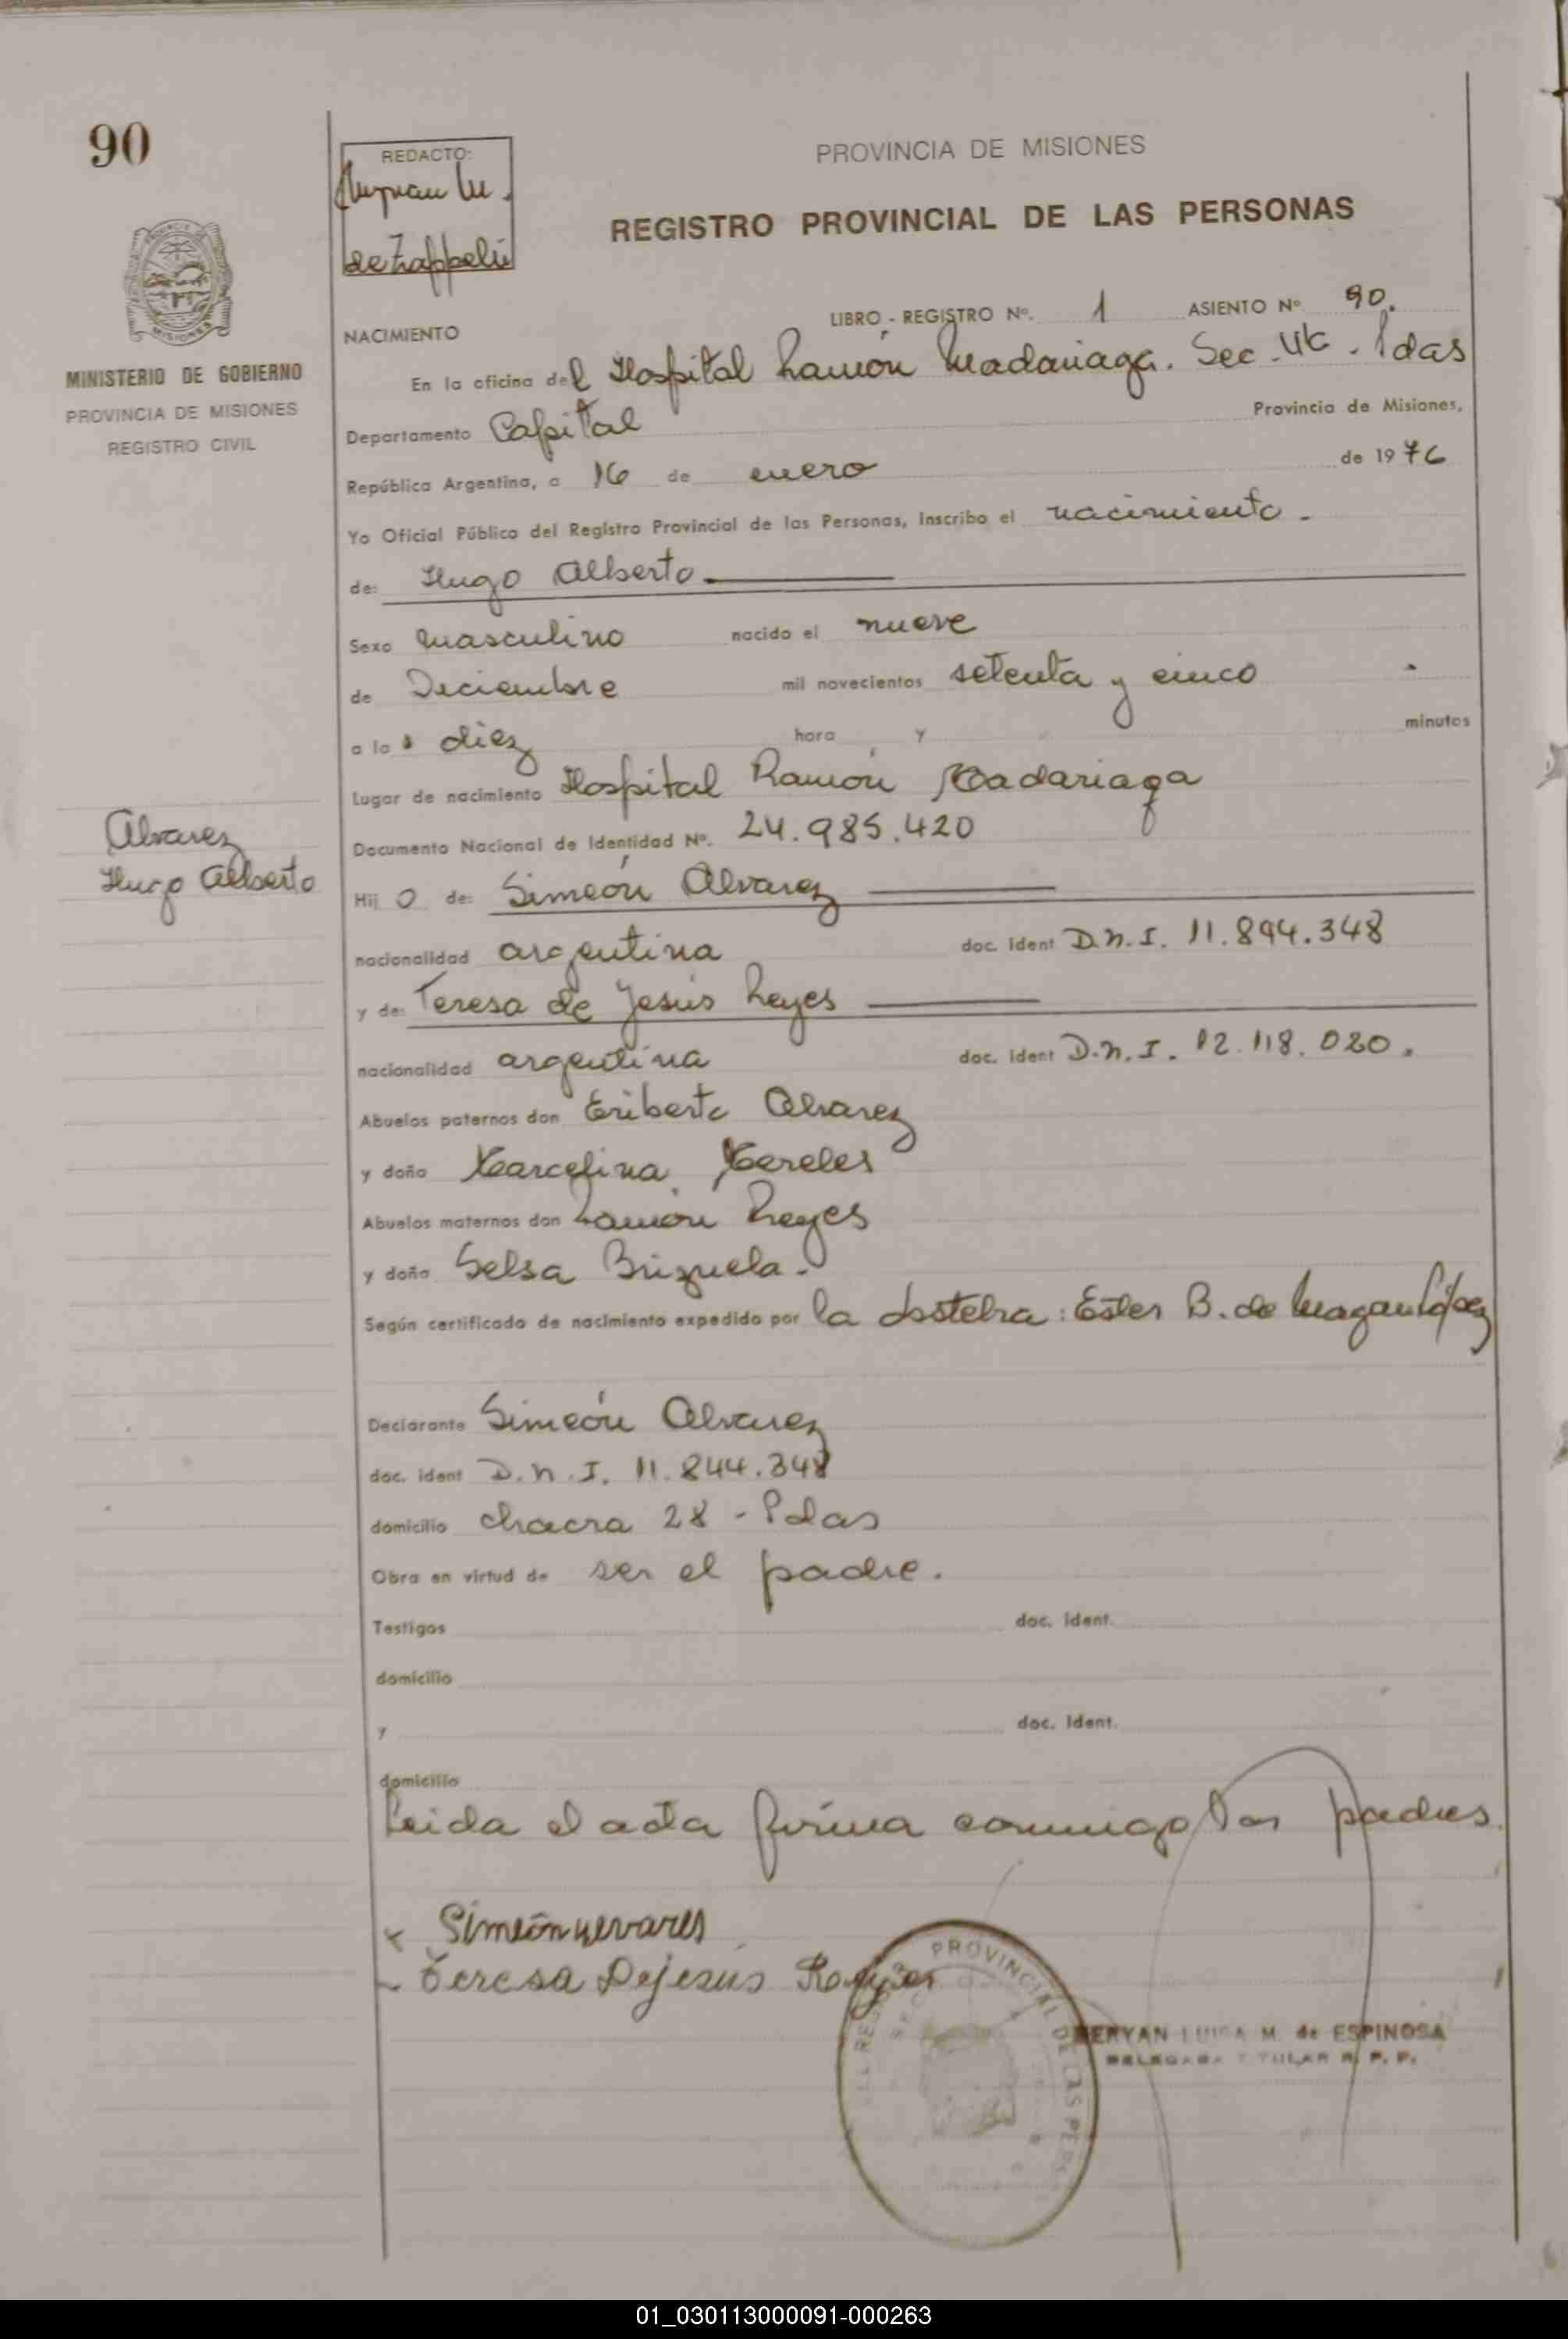 90
REDACTO:
de Zappelli
PROVINCIA DE MISIONES
REGISTRO PROVINCIAL DE LAS PERSONAS
MINISTERIO DE GOBIERNO
PROVINCIA DE MISIONES
REGISTRO CIVIL
LIBRO - REGISTRO Nº. 1 ASIENTO Nº 90.
NACIMIENTO
En la oficina del Hospital Ramón Madariaga. Sec. Pdas
Departamento Capital Provincia de Misiones,
República Argentina, a 16 de enero de 1976
Yo Oficial Público del Registro Provincial de las Personas, inscribo el nacimiento.
de: Hugo Alberto.
Sexo masculino nacido el nueve
de Deciembre mil novecientos setenta y cinco
a las diez hora y minutos
Lugar de nacimiento Hospital Ramón Madariaga
Documento Nacional de Identidad Nº. 24.985.420
Alvarez
Hugo Alberto
Hijo de: Simeón Alvarez
nacionalidad argentina doc. ident D.N.I. 11.894.348
y de: Teresa de Jesús Reyes
nacionalidad argentina doc. ident D.N.I. 12.118.020.
Abuelos paternos don Eriberto Alvarez
y doña Marcelina Mereles
Abuelos maternos don Ramón Reyes
y doña Selsa Brizuela.
Según certificado de nacimiento expedido por la obstetra: Ester B. de
Declarante Simeón Alvarez
doc. ident D.N.I. 11.844.348
domicilio chacra 28 - Pdas
Obra en virtud de ser el padre.
Testigos doc. ident.
domicilio
y doc. ident.
domicilio
Leida el acta firma conmigo los padres.
Simeón
Teresa Dejesús Reyes
PROVINCIAL DE LAS
LUISA M. de ESPINOSA
DELEGADA TITULAR R. P. P.
01_030113000091-000263